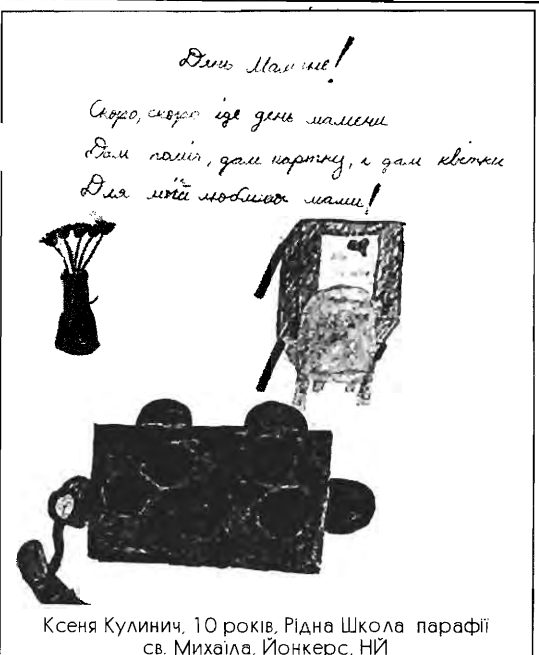 День Мамине!
Скоро, скоро іде день мамени
Дам поміч, дам картку, і дам квітки
Для моїй любимої мами!
Ксеня Кулинич, 10 років, Рідна Школа парафії
св. Михаїла, Йонкерс, НЙ